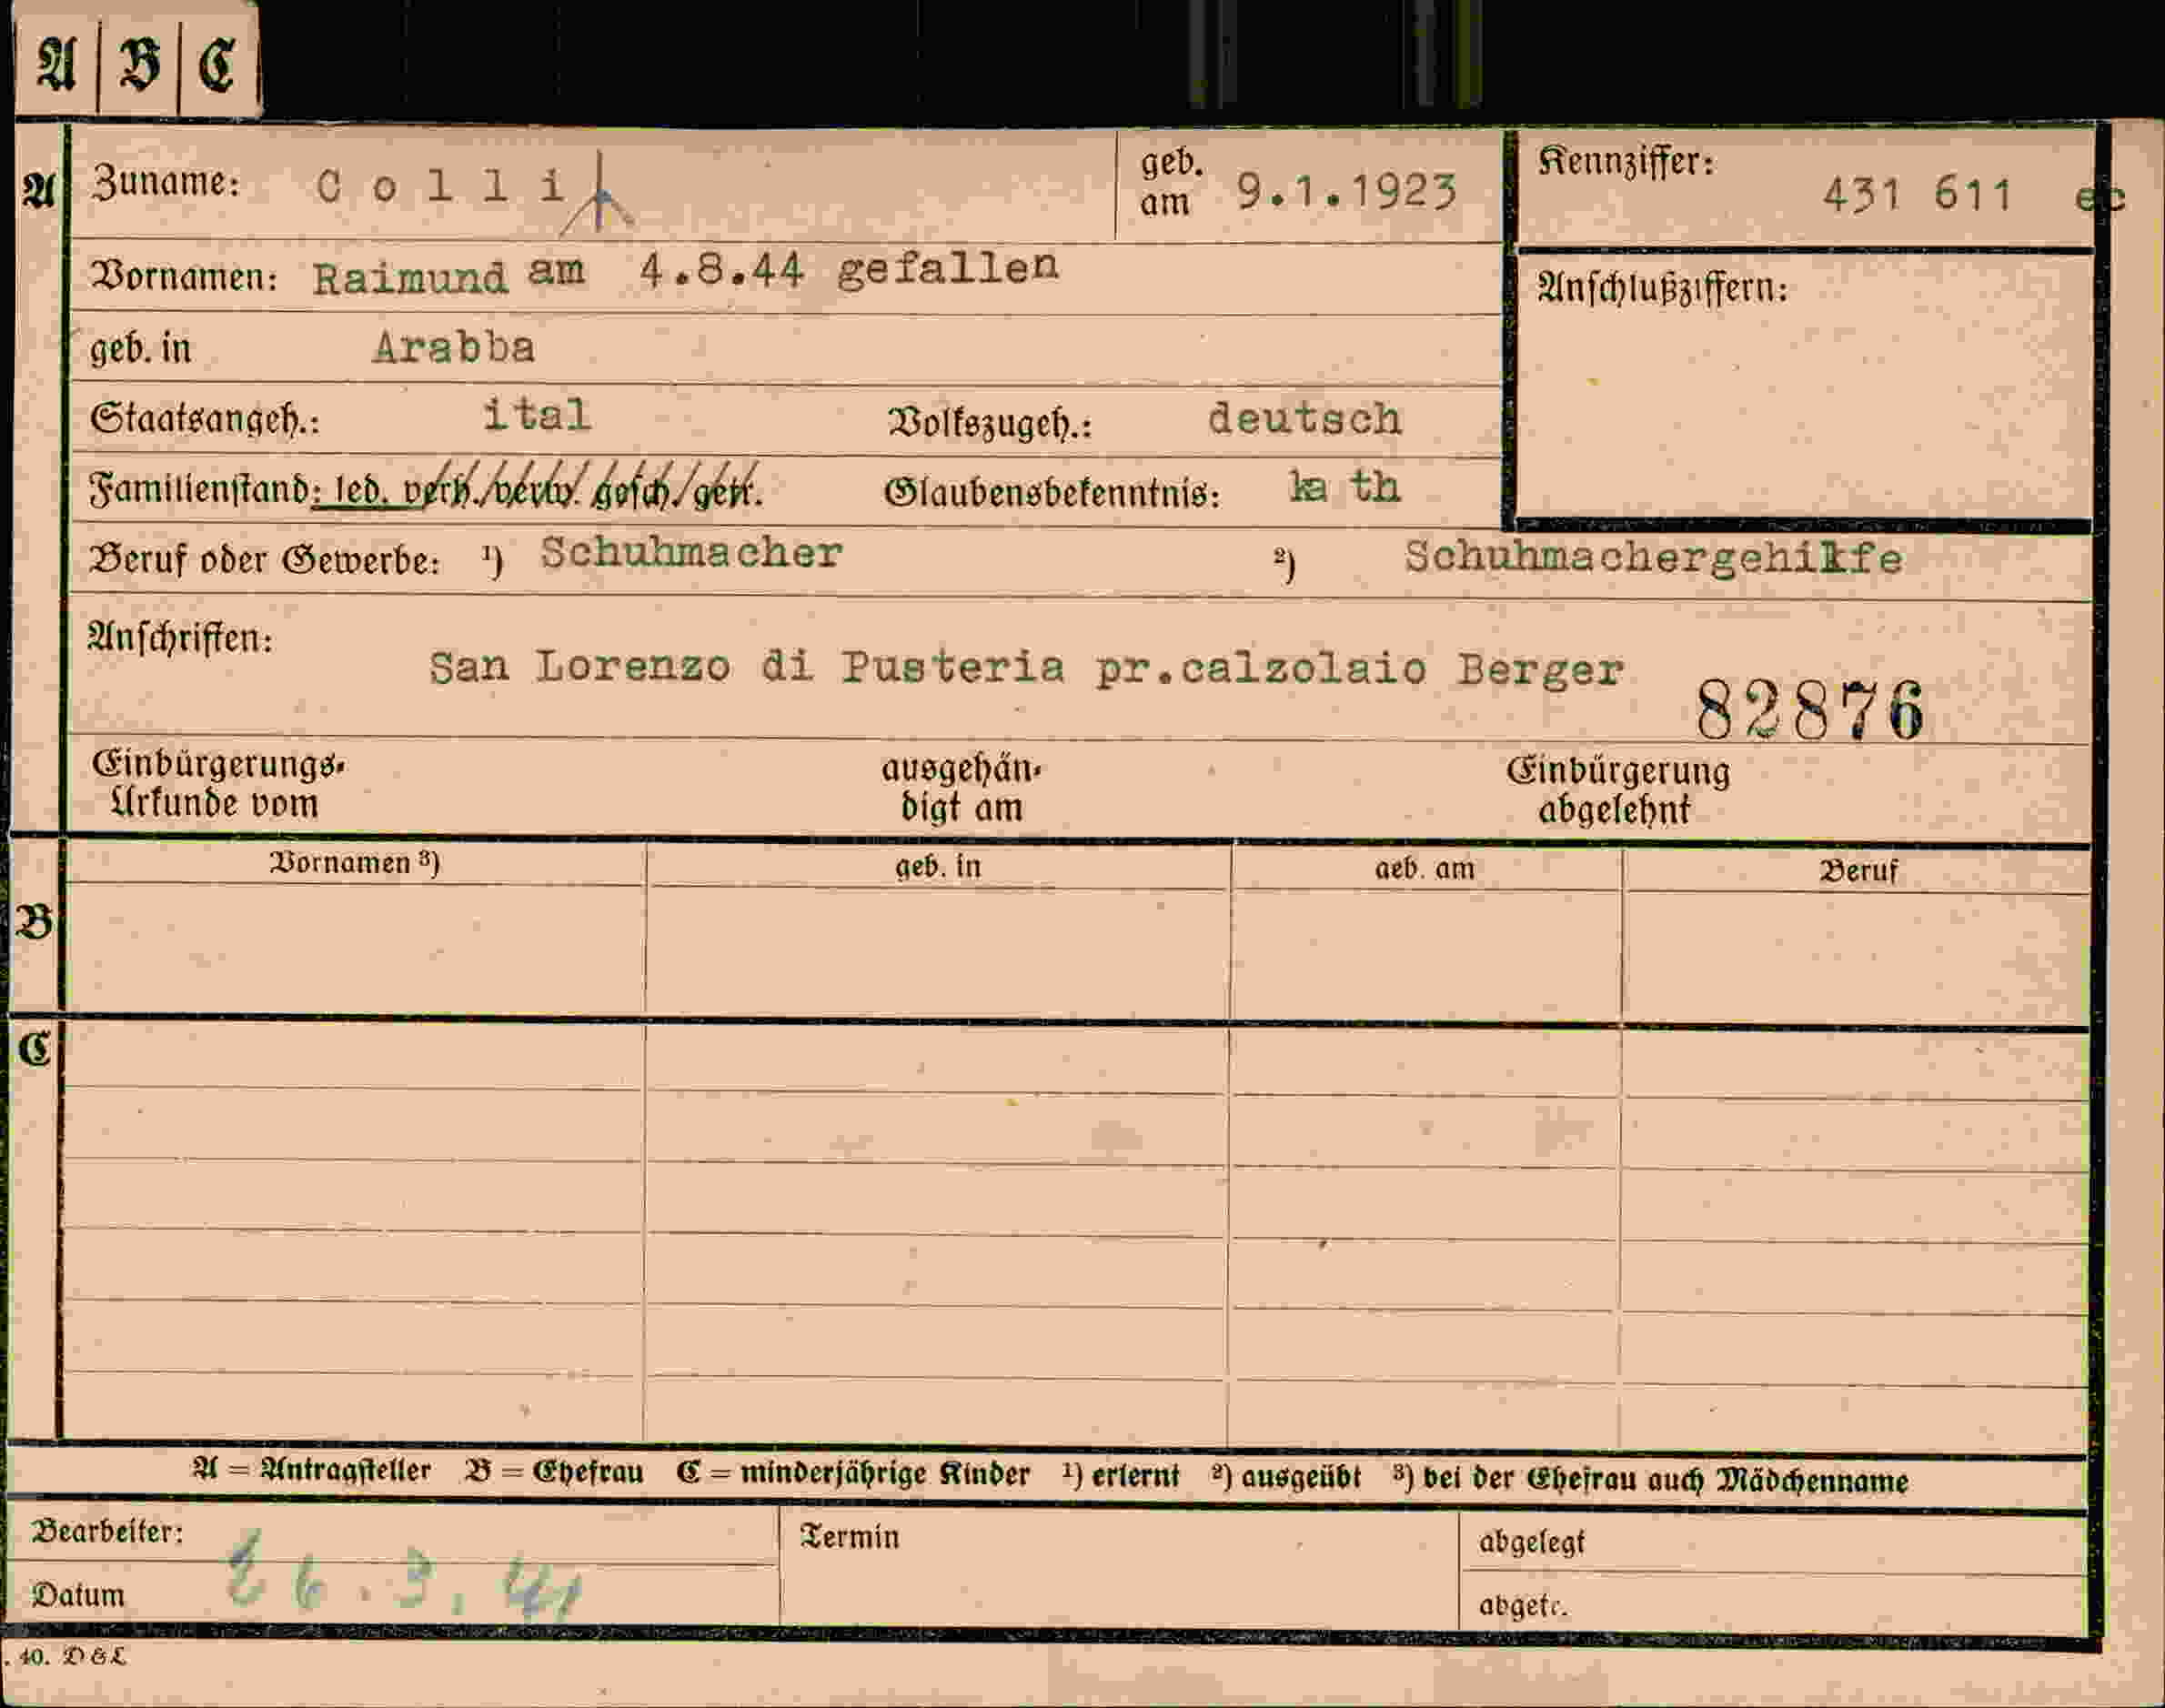 A | B | C
A Zuname: Colli geb. am 9.1.1923 Kennziffer: 431 611 ec
Vornamen: Raimund am 4.8.44 gefallen Anschlußziffern:
geb. in Arabba
Staatsangeh.: ital Volkszugeh.: deutsch
Familienstand: led. verh./verw. gesch./getr. Glaubensbekenntnis: ka th
Beruf oder Gewerbe: ¹) Schuhmacher ²) Schuhmachergehilfe
Anschriften:
San Lorenzo di Pusteria pr.calzolaio Berger
82876
Einbürgerungs- Urkunde vom ausgehän- digt am Einbürgerung abgelehnt
Vornamen ³) geb. in geb. am Beruf
B
C
A = Antragsteller B = Ehefrau C = minderjährige Kinder ¹) erlernt ²) ausgeübt ³) bei der Ehefrau auch Mädchenname
Bearbeiter: Termin abgelegt
Datum 26.3.41 abgetr.
. 40. D & L